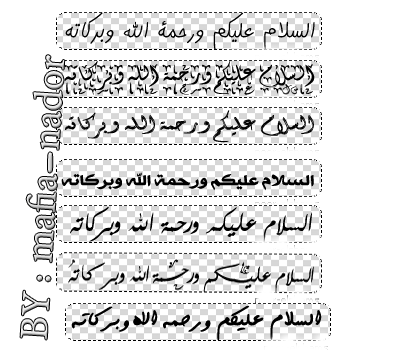 السلام عليكم ورحمة الله وبركاته
السلام عليكم ورحمة الله وبركاته
السلام عليكم ورحمة الله وبركاته
السلام عليكم ورحمة الله وبركاته
السلام عليكم ورحمة الله وبركاته
السلام عليكم ورحمة الله وبركاته
السلام عليكم ورحمه الله وبركاته
BY : mafia-nador